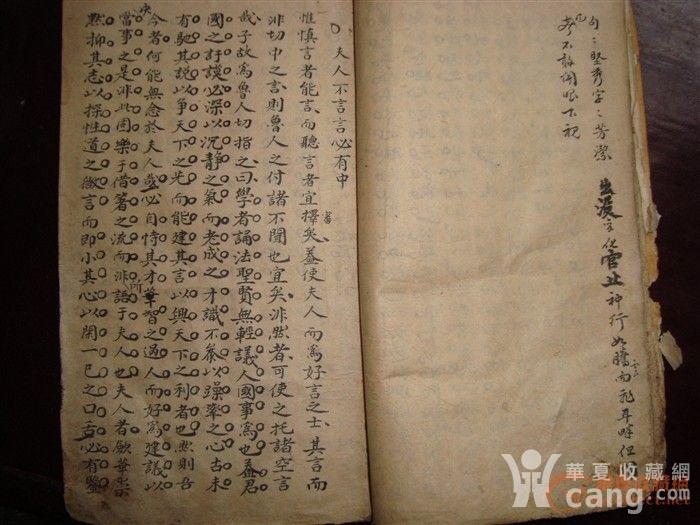 句〻堅秀字〻芳潔
凡不敢閉眼下視
出没 化官止神行如
夫人不言言必有中
惟慎言者能言而聽言者宜擇矣蓋使夫人而爲好言之士其言而
審
非切中之言則魯人之付諸不聞也宜矣非然者可使之托諸空言
哉子故爲魯人切指之曰學者誦法聖賢無輕議人國事爲也蓋君
國之訏謨必深以沉靜之氣而老成之才識不參以躁率之心古未
有馳其說以爭天下之先而能建其言以興天下之利者也然則吾
今者何能無念於夫人哉必自恃其才華智之過人而好爲建議以
所
當事之是非此固樂于借箸之流而非語于夫人也夫人者斂華
黙抑其志以探性道之微言而即小其心以閑一已之口舌必有鑒
華夏收藏網
cang.com